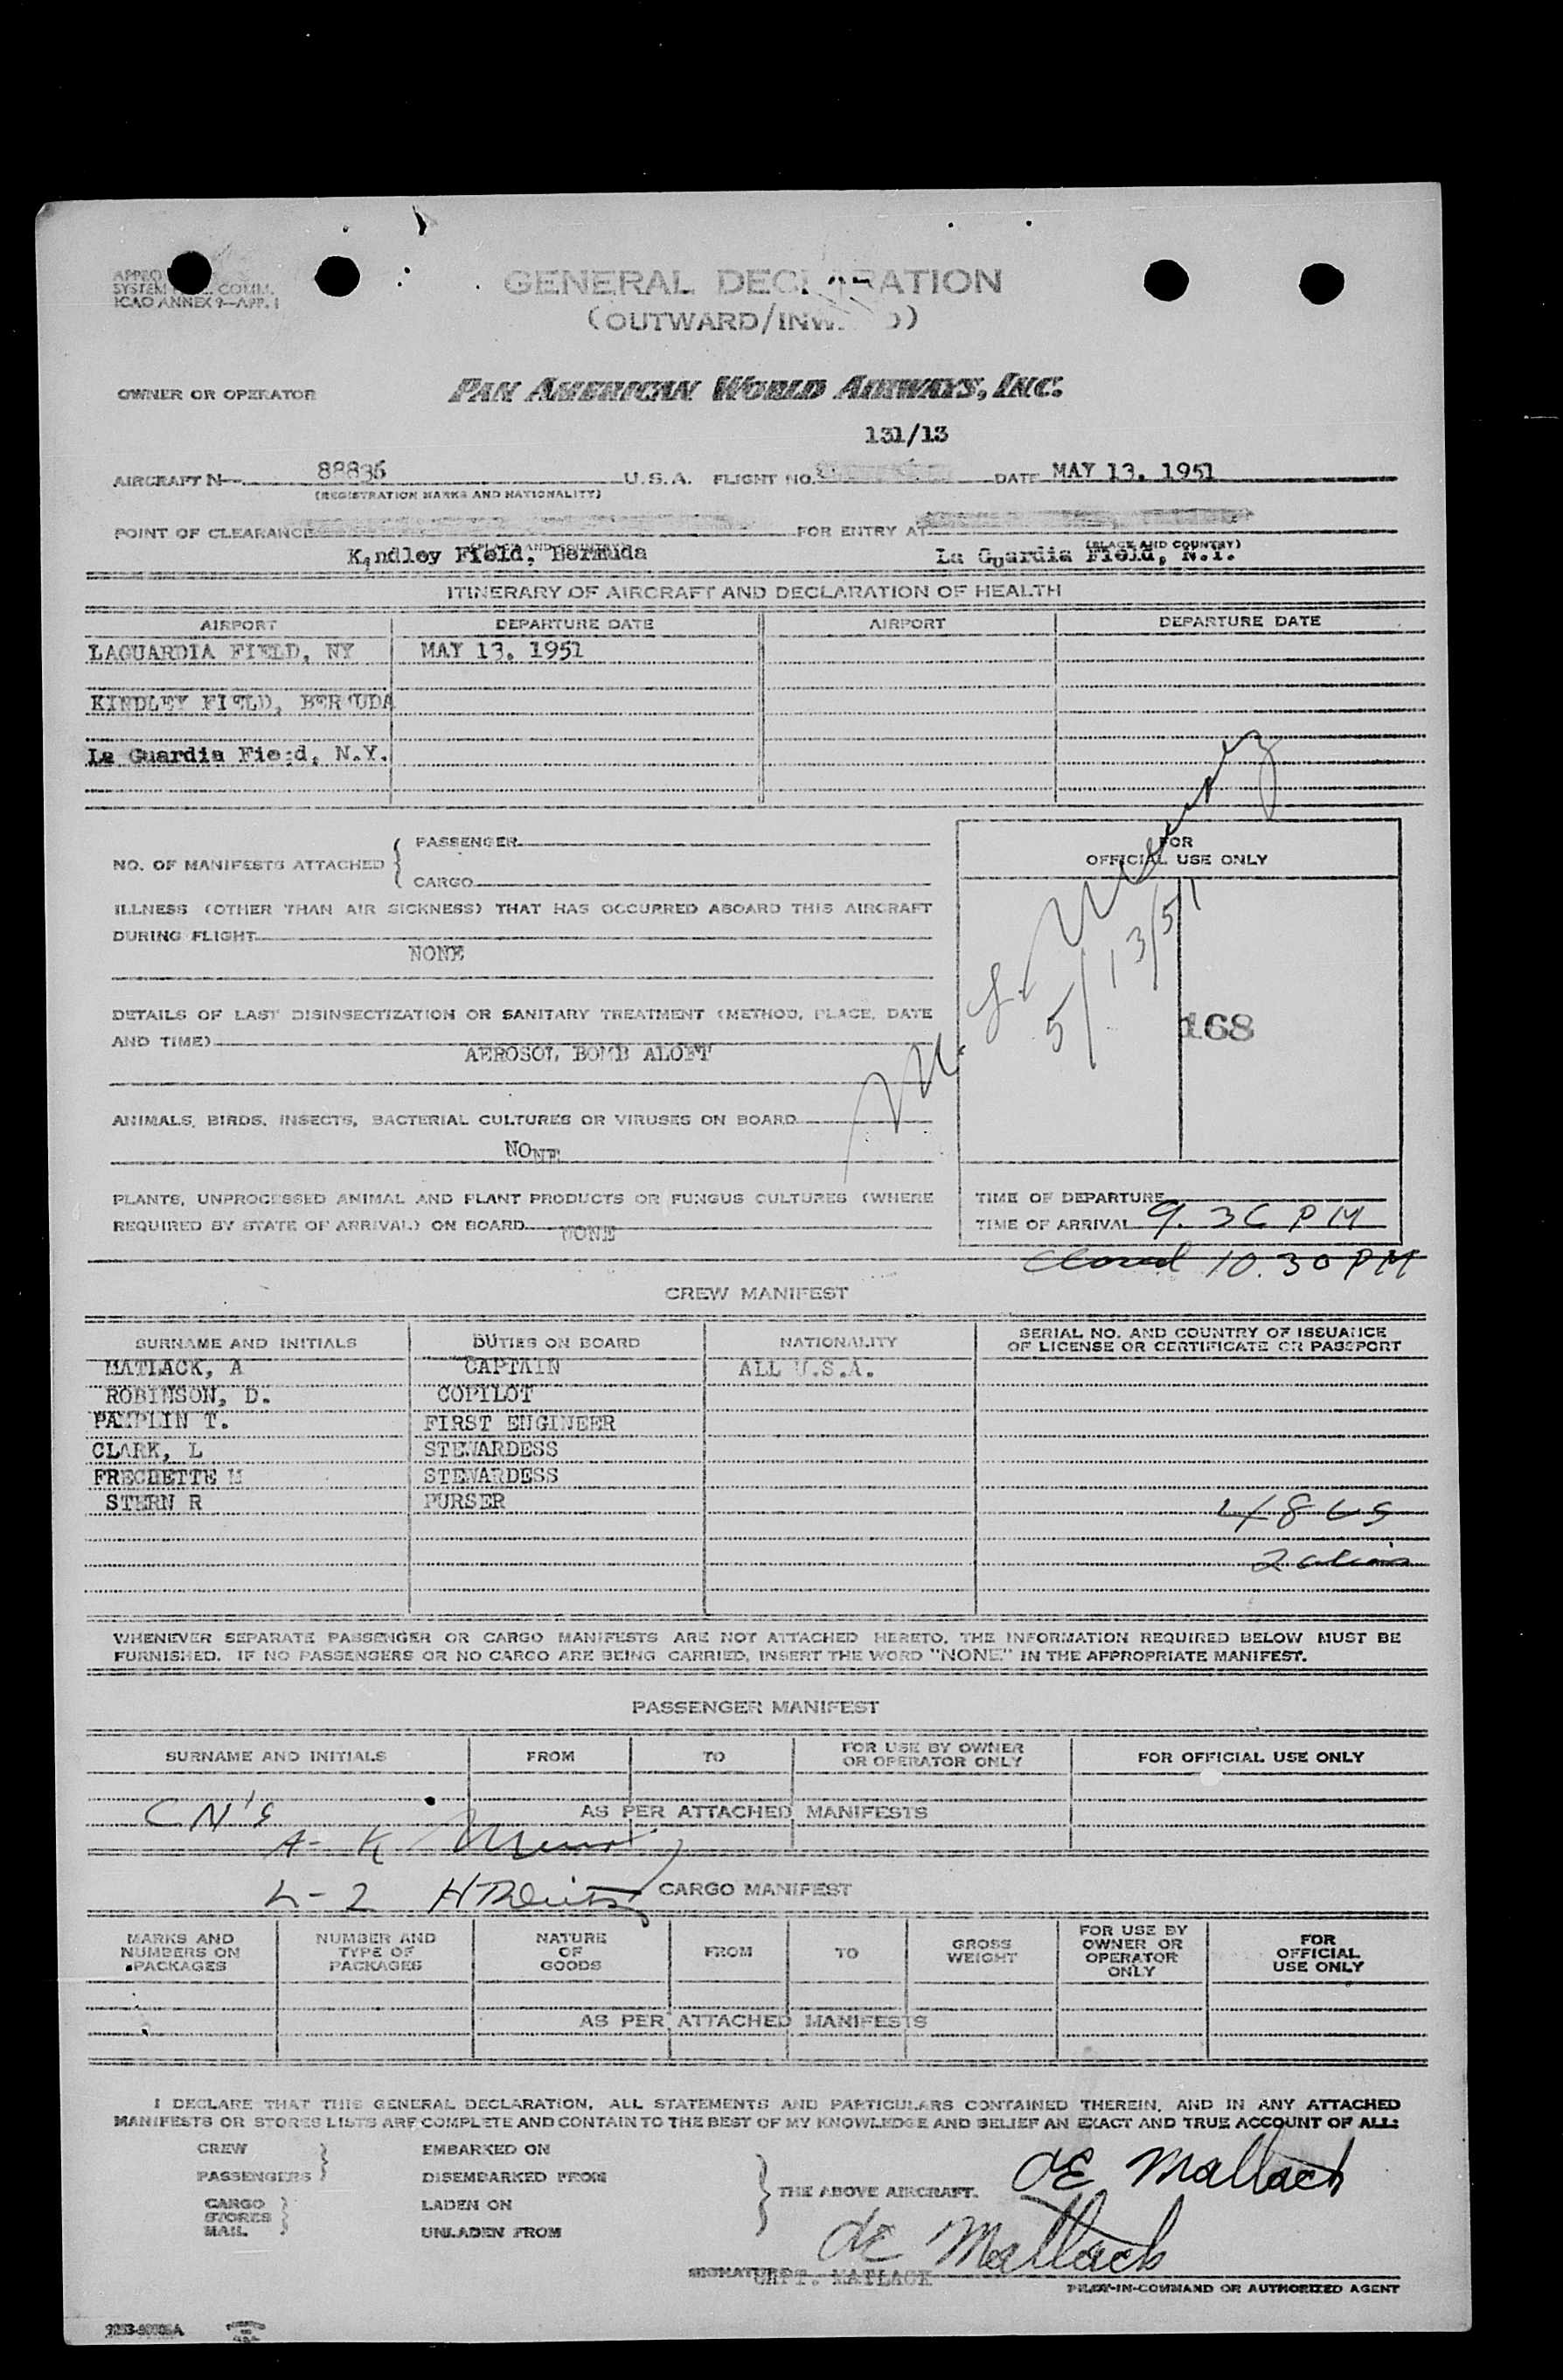 SYSTEM COMM.
ICAO ANNEX 9—APP. 1
GENERAL DECLARATION
(OUTWARD/INWARD)
OWNER OR OPERATOR PAN AMERICAN WORLD AIRWAYS, INC.
131/13
AIRCRAFT N- 88836 U.S.A. FLIGHT NO. DATE MAY 13. 1951
(REGISTRATION MARKS AND NATIONALITY)
POINT OF CLEARANCE FOR ENTRY AT
(PLACE AND COUNTRY)
Kindley Field, Bermuda La Guardia Field, N.Y.
ITINERARY OF AIRCRAFT AND DECLARATION OF HEALTH
AIRPORT DEPARTURE DATE AIRPORT DEPARTURE DATE
LAGUARDIA FIELD, NY MAY 13. 1951
KINDLEY FIELD, BERMUDA
La Guardia Fie:d, N.Y.
NO. OF MANIFESTS ATTACHED { PASSENGER
CARGO
FOR
OFFICIAL USE ONLY
ILLNESS (OTHER THAN AIR SICKNESS) THAT HAS OCCURRED ABOARD THIS AIRCRAFT
DURING FLIGHT
NONE
5/13/51
168
DETAILS OF LAST DISINSECTIZATION OR SANITARY TREATMENT (METHOD, PLACE, DATE
AND TIME)
AEROSOL BOMB ALOFT
ANIMALS, BIRDS, INSECTS, BACTERIAL CULTURES OR VIRUSES ON BOARD
NONE
PLANTS, UNPROCESSED ANIMAL AND PLANT PRODUCTS OR FUNGUS CULTURES (WHERE
REQUIRED BY STATE OF ARRIVAL) ON BOARD
NONE
TIME OF DEPARTURE
TIME OF ARRIVAL 9.36 PM
Closed 10.30 PM
CREW MANIFEST
SURNAME AND INITIALS DUTIES ON BOARD NATIONALITY SERIAL NO. AND COUNTRY OF ISSUANCE
OF LICENSE OR CERTIFICATE OR PASSPORT
MATLACK, A CAPTAIN ALL U.S.A.
ROBINSON, D. COPILOT
PAMPLIN T. FIRST ENGINEER
CLARK, L STEWARDESS
FRECHETTE M STEWARDESS
STERN R PURSER
48 US
2 aliens
WHENEVER SEPARATE PASSENGER OR CARGO MANIFESTS ARE NOT ATTACHED HERETO, THE INFORMATION REQUIRED BELOW MUST BE
FURNISHED. IF NO PASSENGERS OR NO CARGO ARE BEING CARRIED, INSERT THE WORD "NONE" IN THE APPROPRIATE MANIFEST.
PASSENGER MANIFEST
SURNAME AND INITIALS FROM TO FOR USE BY OWNER
OR OPERATOR ONLY FOR OFFICIAL USE ONLY
CN's
AS PER ATTACHED MANIFESTS
A- K
L- Z
CARGO MANIFEST
MARKS AND
NUMBERS ON
PACKAGES
NUMBER AND
TYPE OF
PACKAGES
NATURE
OF
GOODS
FROM
TO
GROSS
WEIGHT
FOR USE BY
OWNER OR
OPERATOR
ONLY
FOR
OFFICIAL
USE ONLY
AS PER ATTACHED MANIFESTS
I DECLARE THAT THIS GENERAL DECLARATION, ALL STATEMENTS AND PARTICULARS CONTAINED THEREIN, AND IN ANY ATTACHED
MANIFESTS OR STORES LISTS ARE COMPLETE AND CONTAIN TO THE BEST OF MY KNOWLEDGE AND BELIEF AN EXACT AND TRUE ACCOUNT OF ALL:
CREW
PASSENGERS
CARGO
STORES
MAIL
EMBARKED ON
DISEMBARKED FROM
LADEN ON
UNLADEN FROM
THE ABOVE AIRCRAFT.
AE Matlack
AE Matlack
SIGNATURE CAPT. MATLACK
PILOT-IN-COMMAND OR AUTHORIZED AGENT